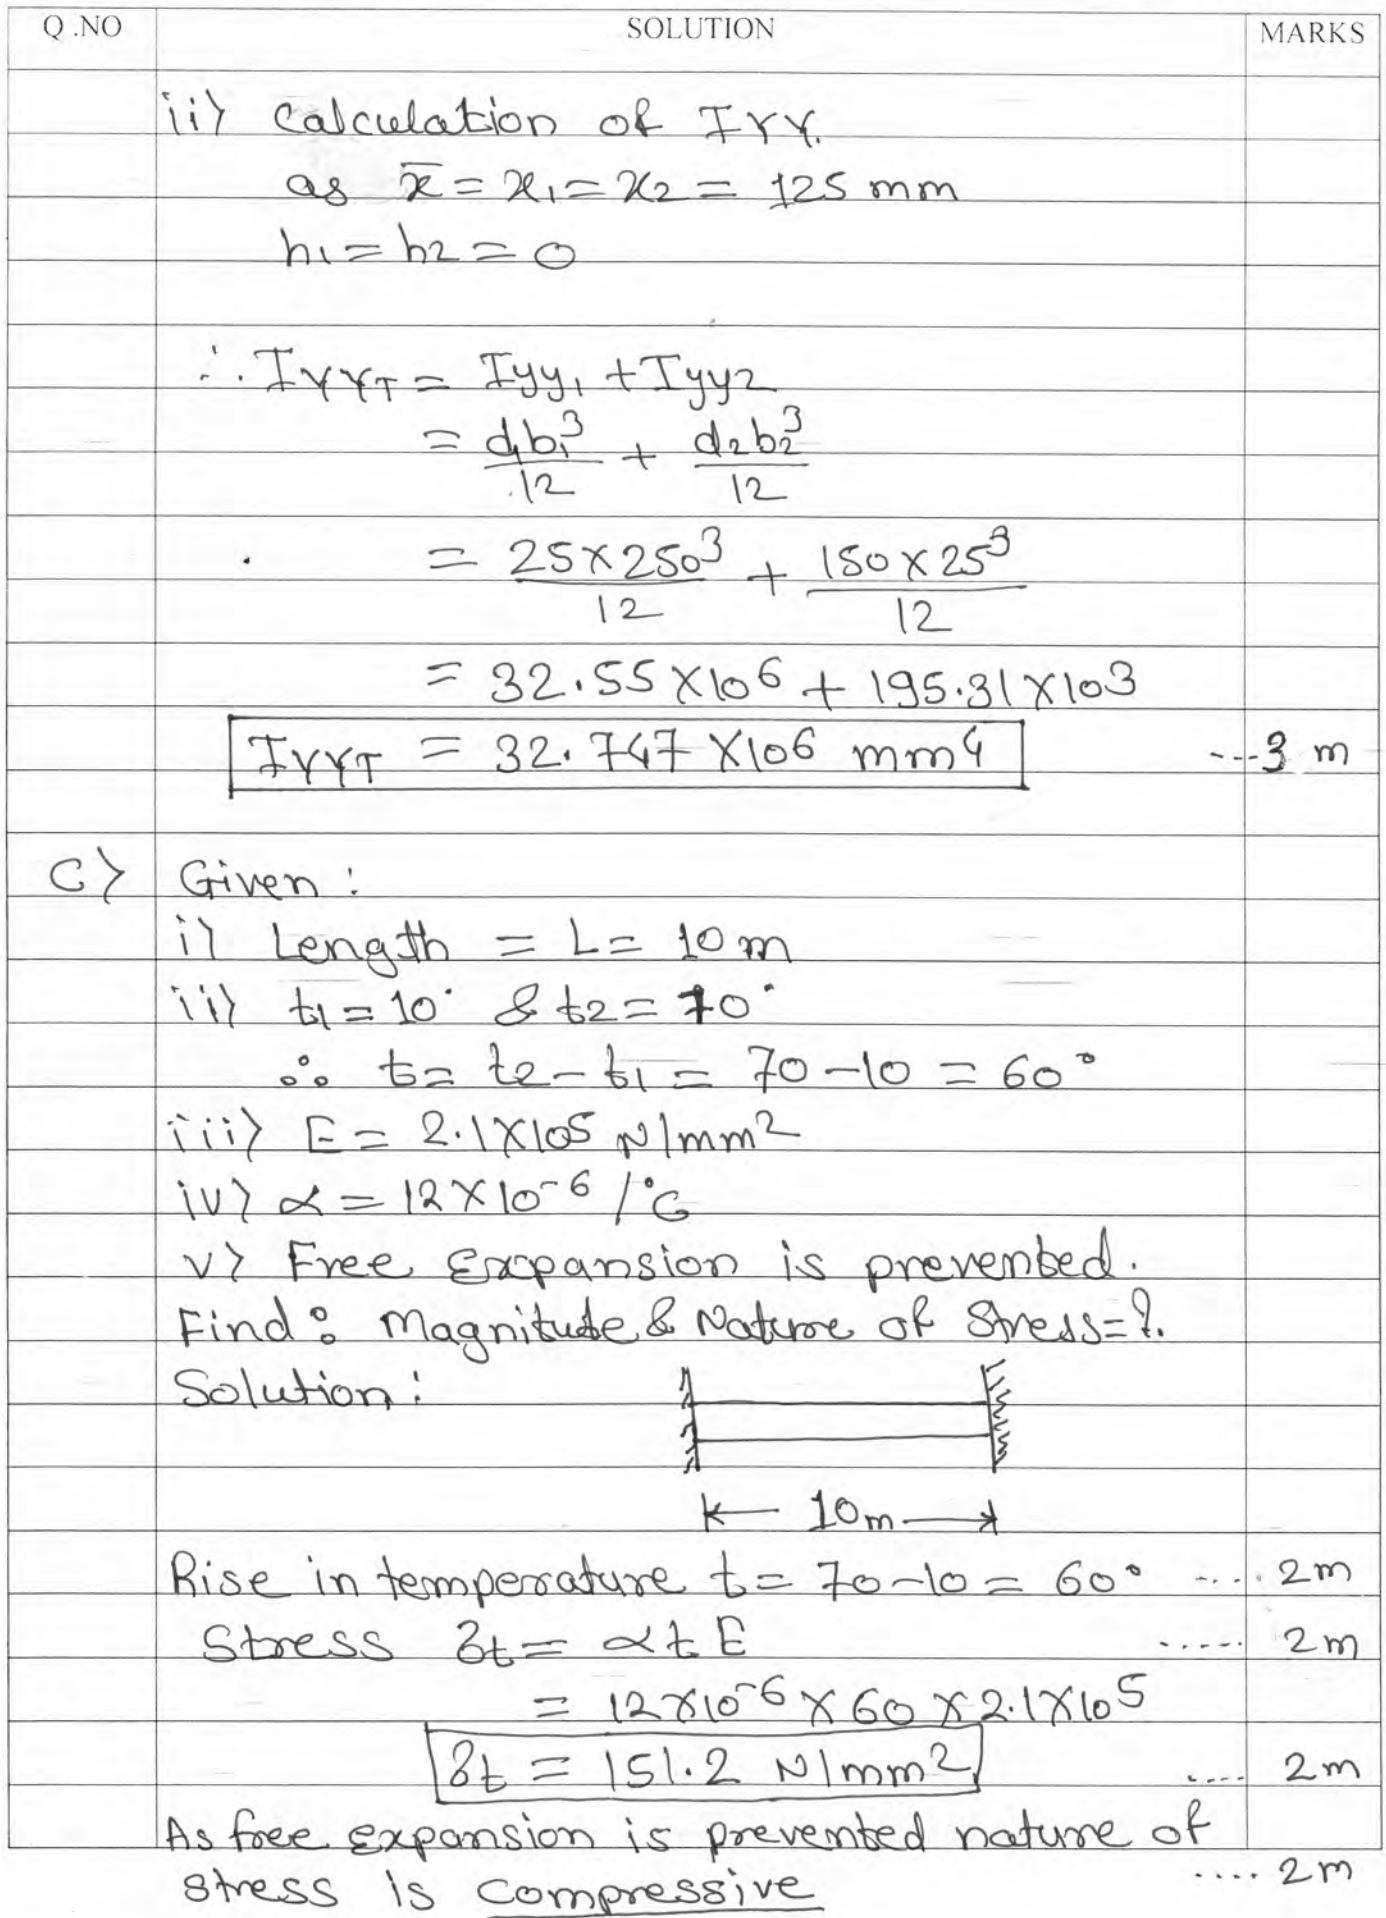 Q .NO SOLUTION MARKS
ii) Calculation of IYY.
as x̅ = x1 = x2 = 125 mm
h1 = h2 = 0
∴ IYYT = Iyy1 + Iyy2
= d1b1³/12 + d2b2³/12
= 25×250³/12 + 150×25³/12
= 32.55×10⁶ + 195.31×10³
IYYT = 32.747×10⁶ mm⁴ ---3 m
C) Given :
i) Length = L = 10 m
ii) t1 = 10° & t2 = 70°
∴ t = t2 - t1 = 70 - 10 = 60°
iii) E = 2.1×10⁵ N/mm²
iv) α = 12×10⁻⁶ /°C
v) Free Expansion is prevented.
Find : Magnitude & Nature of Stress = ?.
Solution :
10m
Rise in temperature t = 70-10 = 60° .... 2m
Stress σt = α t E ..... 2m
= 12×10⁻⁶ × 60 × 2.1×10⁵
σt = 151.2 N/mm² .... 2m
As free expansion is prevented nature of
stress is compressive .... 2m